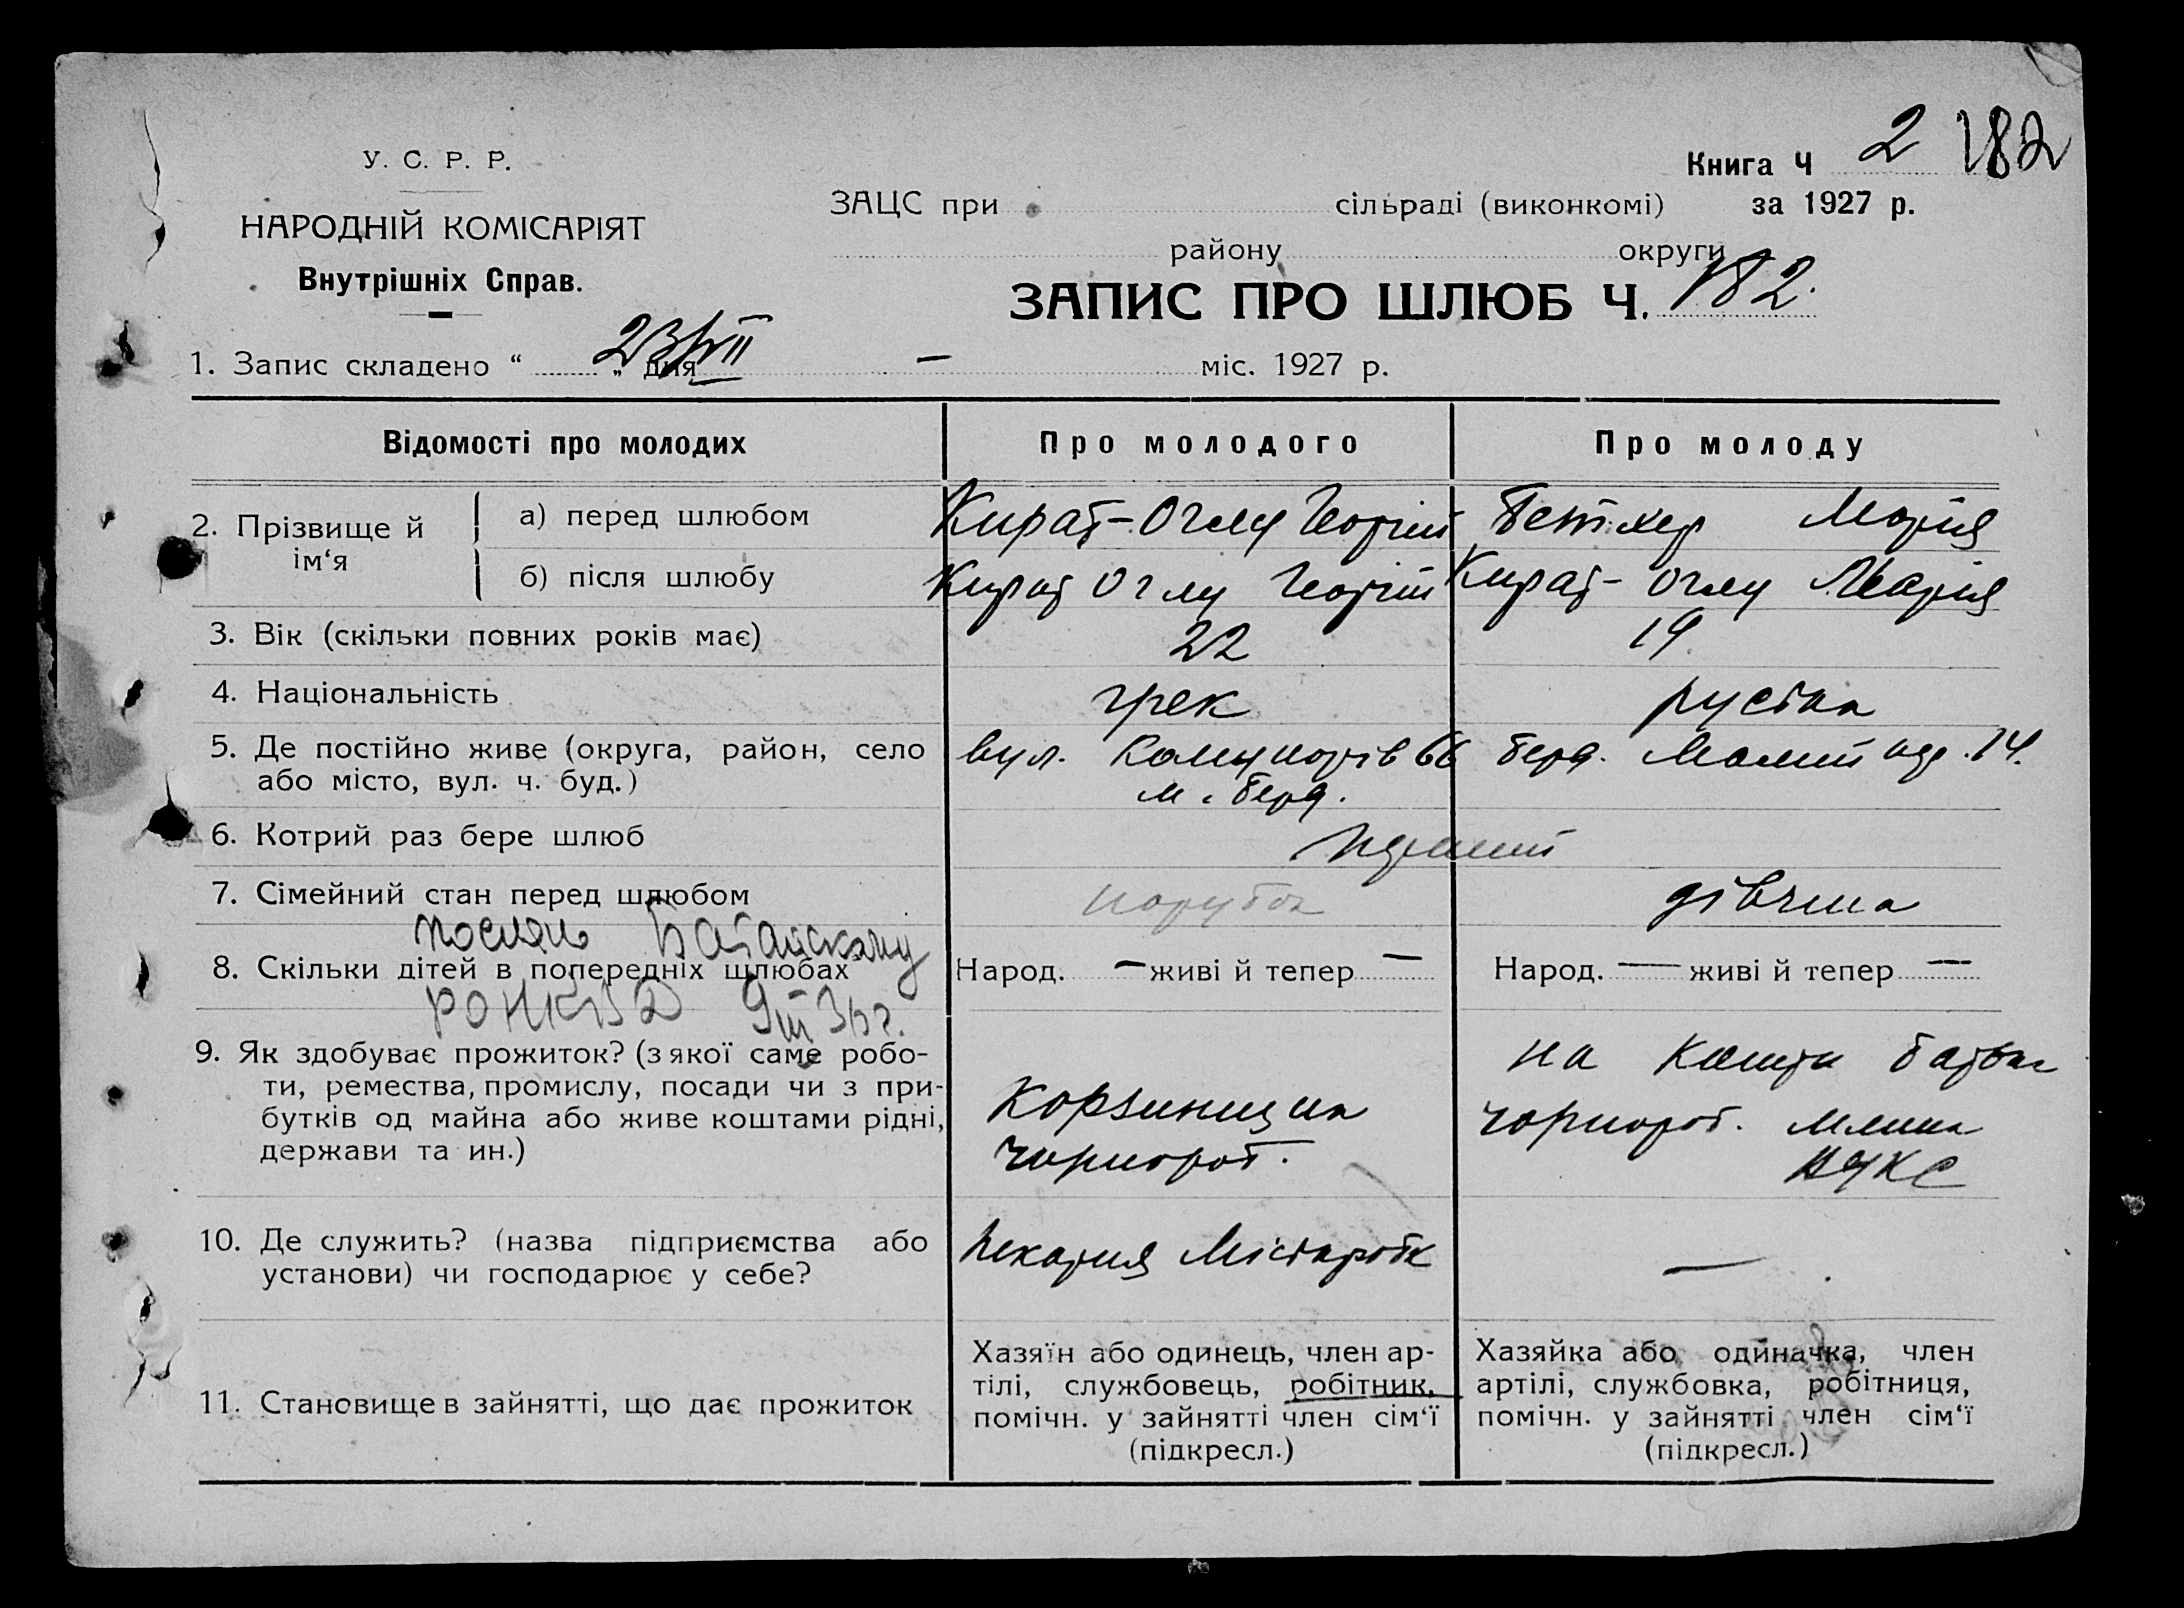 У. С. Р. Р.
НАРОДНІЙ КОМІСАРІЯТ
Внутрішніх Справ.
Книга Ч 2 182
ЗАЦС при сільраді (виконкомі) за 1927 р.
району округи
ЗАПИС ПРО ШЛЮБ Ч. 182.
1. Запис складено “ 23/VII „ дня — міс. 1927 р.
Відомості про молодих Про молодого Про молоду
2. Прізвище й ім‘я
а) перед шлюбом Кират-Оглу Георгій Марія
б) після шлюбу Кират Оглу Георгій Кират-Оглу Марія
3. Вік (скільки повних років має) 22 19
4. Національність грек руська
5. Де постійно живе (округа, район, село вул. Комунарів 66 Берд. 14.
або місто, вул. ч. буд.) м. Берд.
6. Котрий раз бере шлюб перший
7. Сімейний стан перед шлюбом парубок дівчина
послано Батайскому
8. Скільки дітей в попередніх шлюбах Народ. — живі й тепер — Народ. — живі й тепер —
РОНКВД 9/III 36 г.
9. Як здобуває прожиток? (з якої саме робо- на кошти батька
ти, ремества, промислу, посади чи з при-
бутків од майна або живе коштами рідні, чорнороб. млина
держави та ин.) чорнороб.
10. Де служить? (назва підприємства або Пекарня —
установи) чи господарює у себе?
11. Становище в зайнятті, що дає прожиток
Хазяїн або одинець, член ар-
тілі, службовець, робітник,
помічн. у зайнятті член сім‘ї
(підкресл.)
Хазяйка або одиначка, член
артілі, службовка, робітниця,
помічн. у зайнятті член сім‘ї
(підкресл.)